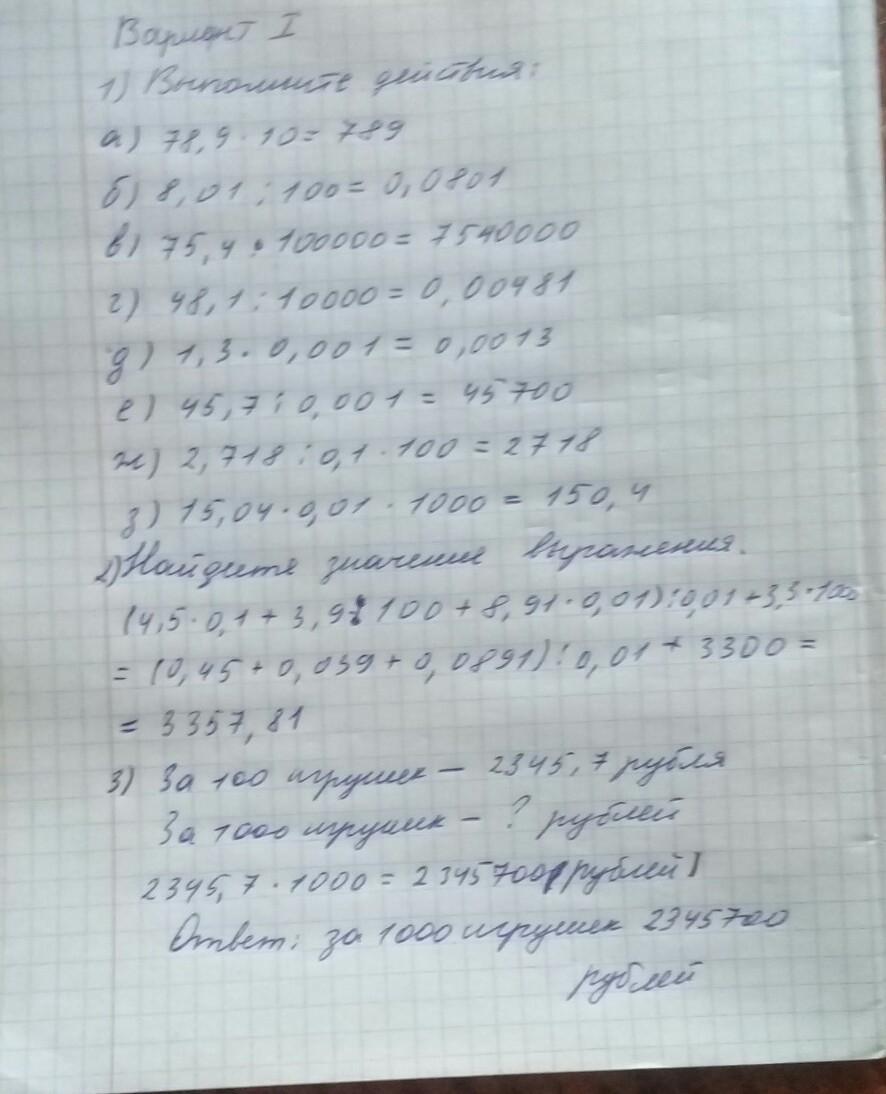 Вариант I
1) Выполните действия:
а) 78,9 · 10 = 789
б) 8,01 : 100 = 0,0801
в) 75,4 · 100000 = 7540000
г) 48,1 : 10000 = 0,00481
д) 1,3 · 0,001 = 0,0013
е) 45,7 : 0,001 = 45700
ж) 2,718 : 0,1 · 100 = 2718
з) 15,04 · 0,01 · 1000 = 150,4
2) Найдите значение выражения.
(4,5 · 0,1 + 3,9 : 100 + 8,91 · 0,01) : 0,01 + 3,3 · 1000
= (0,45 + 0,039 + 0,0891) : 0,01 + 3300 =
= 3357,81
3) За 100 игрушек – 2345,7 рубля
За 1000 игрушек – ? рублей
2345,7 · 1000 = 2345700 (рублей)
Ответ: за 1000 игрушек 2345700
рублей